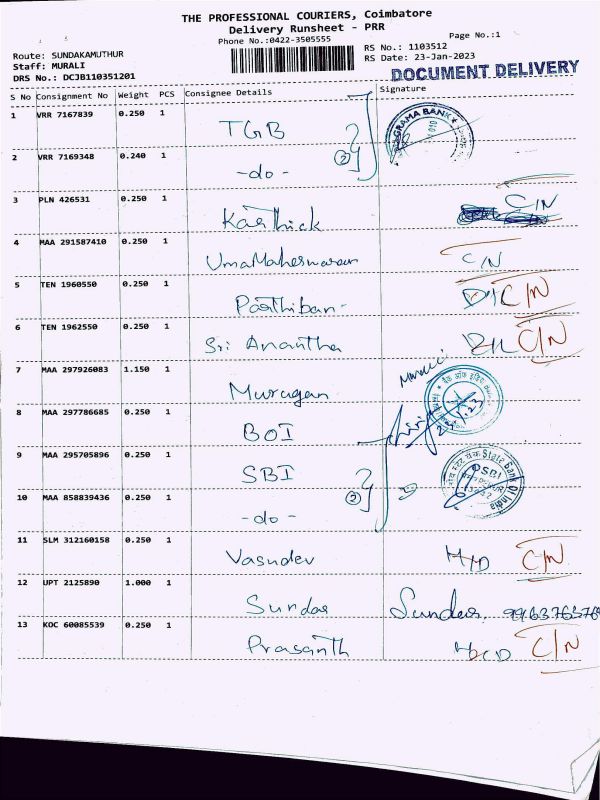 THE PROFESSIONAL COURIERS, Coimbatore
Delivery Runsheet - PRR
Phone No.:0422-3505555
Page No.:1
Route: SUNDAKAMUTHUR
RS No.: 1103512
Staff: MURALI
RS Date: 23-Jan-2023
DRS No.: DCJB110351201
DOCUMENT DELIVERY
S No Consignment No Weight PCS Consignee Details Signature
1 VRR 7167839 0.250 1 TGB GRAMA BANK
2 VRR 7169348 0.240 1 -do- (2)
3 PLN 426531 0.250 1 Karthick C/N
4 MAA 291587410 0.250 1 UmaMaheswaran C/N
5 TEN 1960550 0.250 1 Parthiban- D/L C/N
6 TEN 1962550 0.250 1 Sri Anantha D/L C/N
7 MAA 297926083 1.150 1 Murugan
8 MAA 297786685 0.250 1 BOI
9 MAA 295705896 0.250 1 SBI State Bank Of India
10 MAA 858839436 0.250 1 -do- (2)
11 SLM 312160158 0.250 1 Vasudev H/D C/N
12 UPT 2125890 1.000 1 Sundar Sundar.
13 KOC 60085539 0.250 1 Prasanth C/N